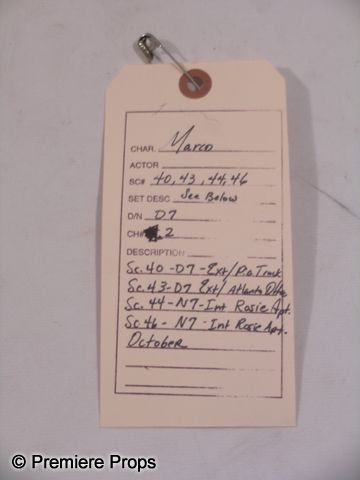 CHAR. Marco
ACTOR
SC# 40, 43, 44, 46
SET DESC. See Below
D/N D7
CH# 2
DESCRIPTION
Sc. 40 - D7 - Ext/P.O. Truck
Sc. 43 - D7 Ext/Atlanta
Sc. 44 - N7 - Int Rosie Apt.
Sc 46 - N7 - Int Rosie Apt.
October
© Premiere Props